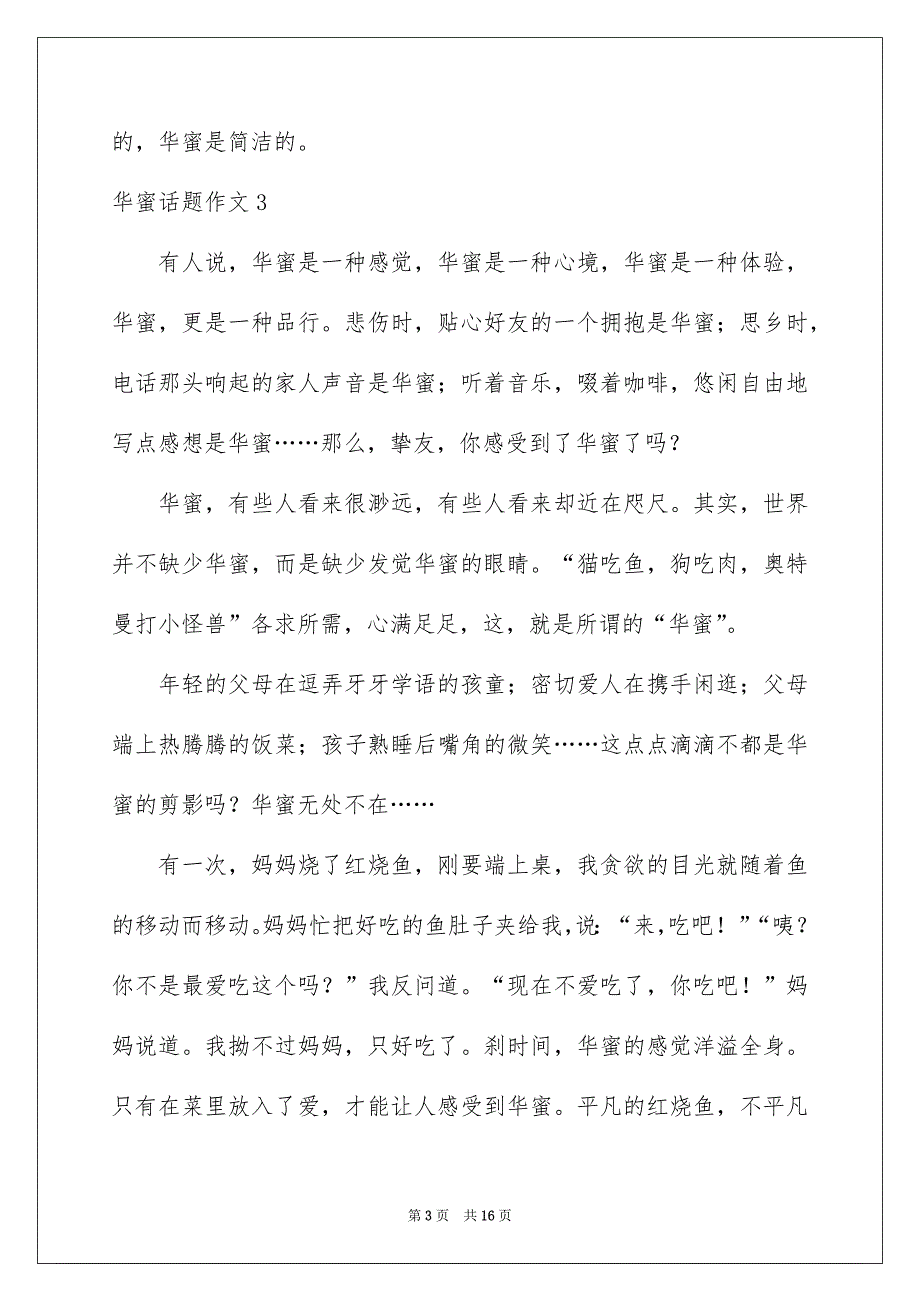 的，华蜜是简洁的。
华蜜话题作文 3
有人说，华蜜是一种感觉，华蜜是一种心境，华蜜是一种体验，
华蜜，更是一种品行。悲伤时，贴心好友的一个拥抱是华蜜；思乡时，
电话那头响起的家人声音是华蜜；听着音乐，啜着咖啡，悠闲自由地
写点感想是华蜜……那么，挚友，你感受到了华蜜了吗？
华蜜，有些人看来很渺远，有些人看来却近在咫尺。其实，世界
并不缺少华蜜，而是缺少发觉华蜜的眼睛。“猫吃鱼，狗吃肉，奥特
曼打小怪兽”各求所需，心满足足，这，就是所谓的“华蜜”。
年轻的父母在逗弄牙牙学语的孩童；密切爱人在携手闲逛；父母
端上热腾腾的饭菜；孩子熟睡后嘴角的微笑……这点点滴滴不都是华
蜜的剪影吗？华蜜无处不在……
有一次，妈妈烧了红烧鱼，刚要端上桌，我贪欲的目光就随着鱼
的移动而移动。妈妈忙把好吃的鱼肚子夹给我，说：“来，吃吧！”“咦？
你不是最爱吃这个吗？”我反问道。“现在不爱吃了，你吃吧！”妈
妈说道。我拗不过妈妈，只好吃了。刹时间，华蜜的感觉洋溢全身。
只有在菜里放入了爱，才能让人感受到华蜜。平凡的红烧鱼，不平凡
第 3 页 共 16 页